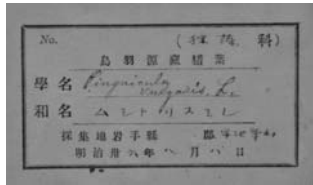 No. (狸藻 科)
鳥羽源藏標業
學名 Pinguicula
vulgaris, L.
和名 ムシトリスミレ
採集地岩手縣 郡
明治卅六年八月八日